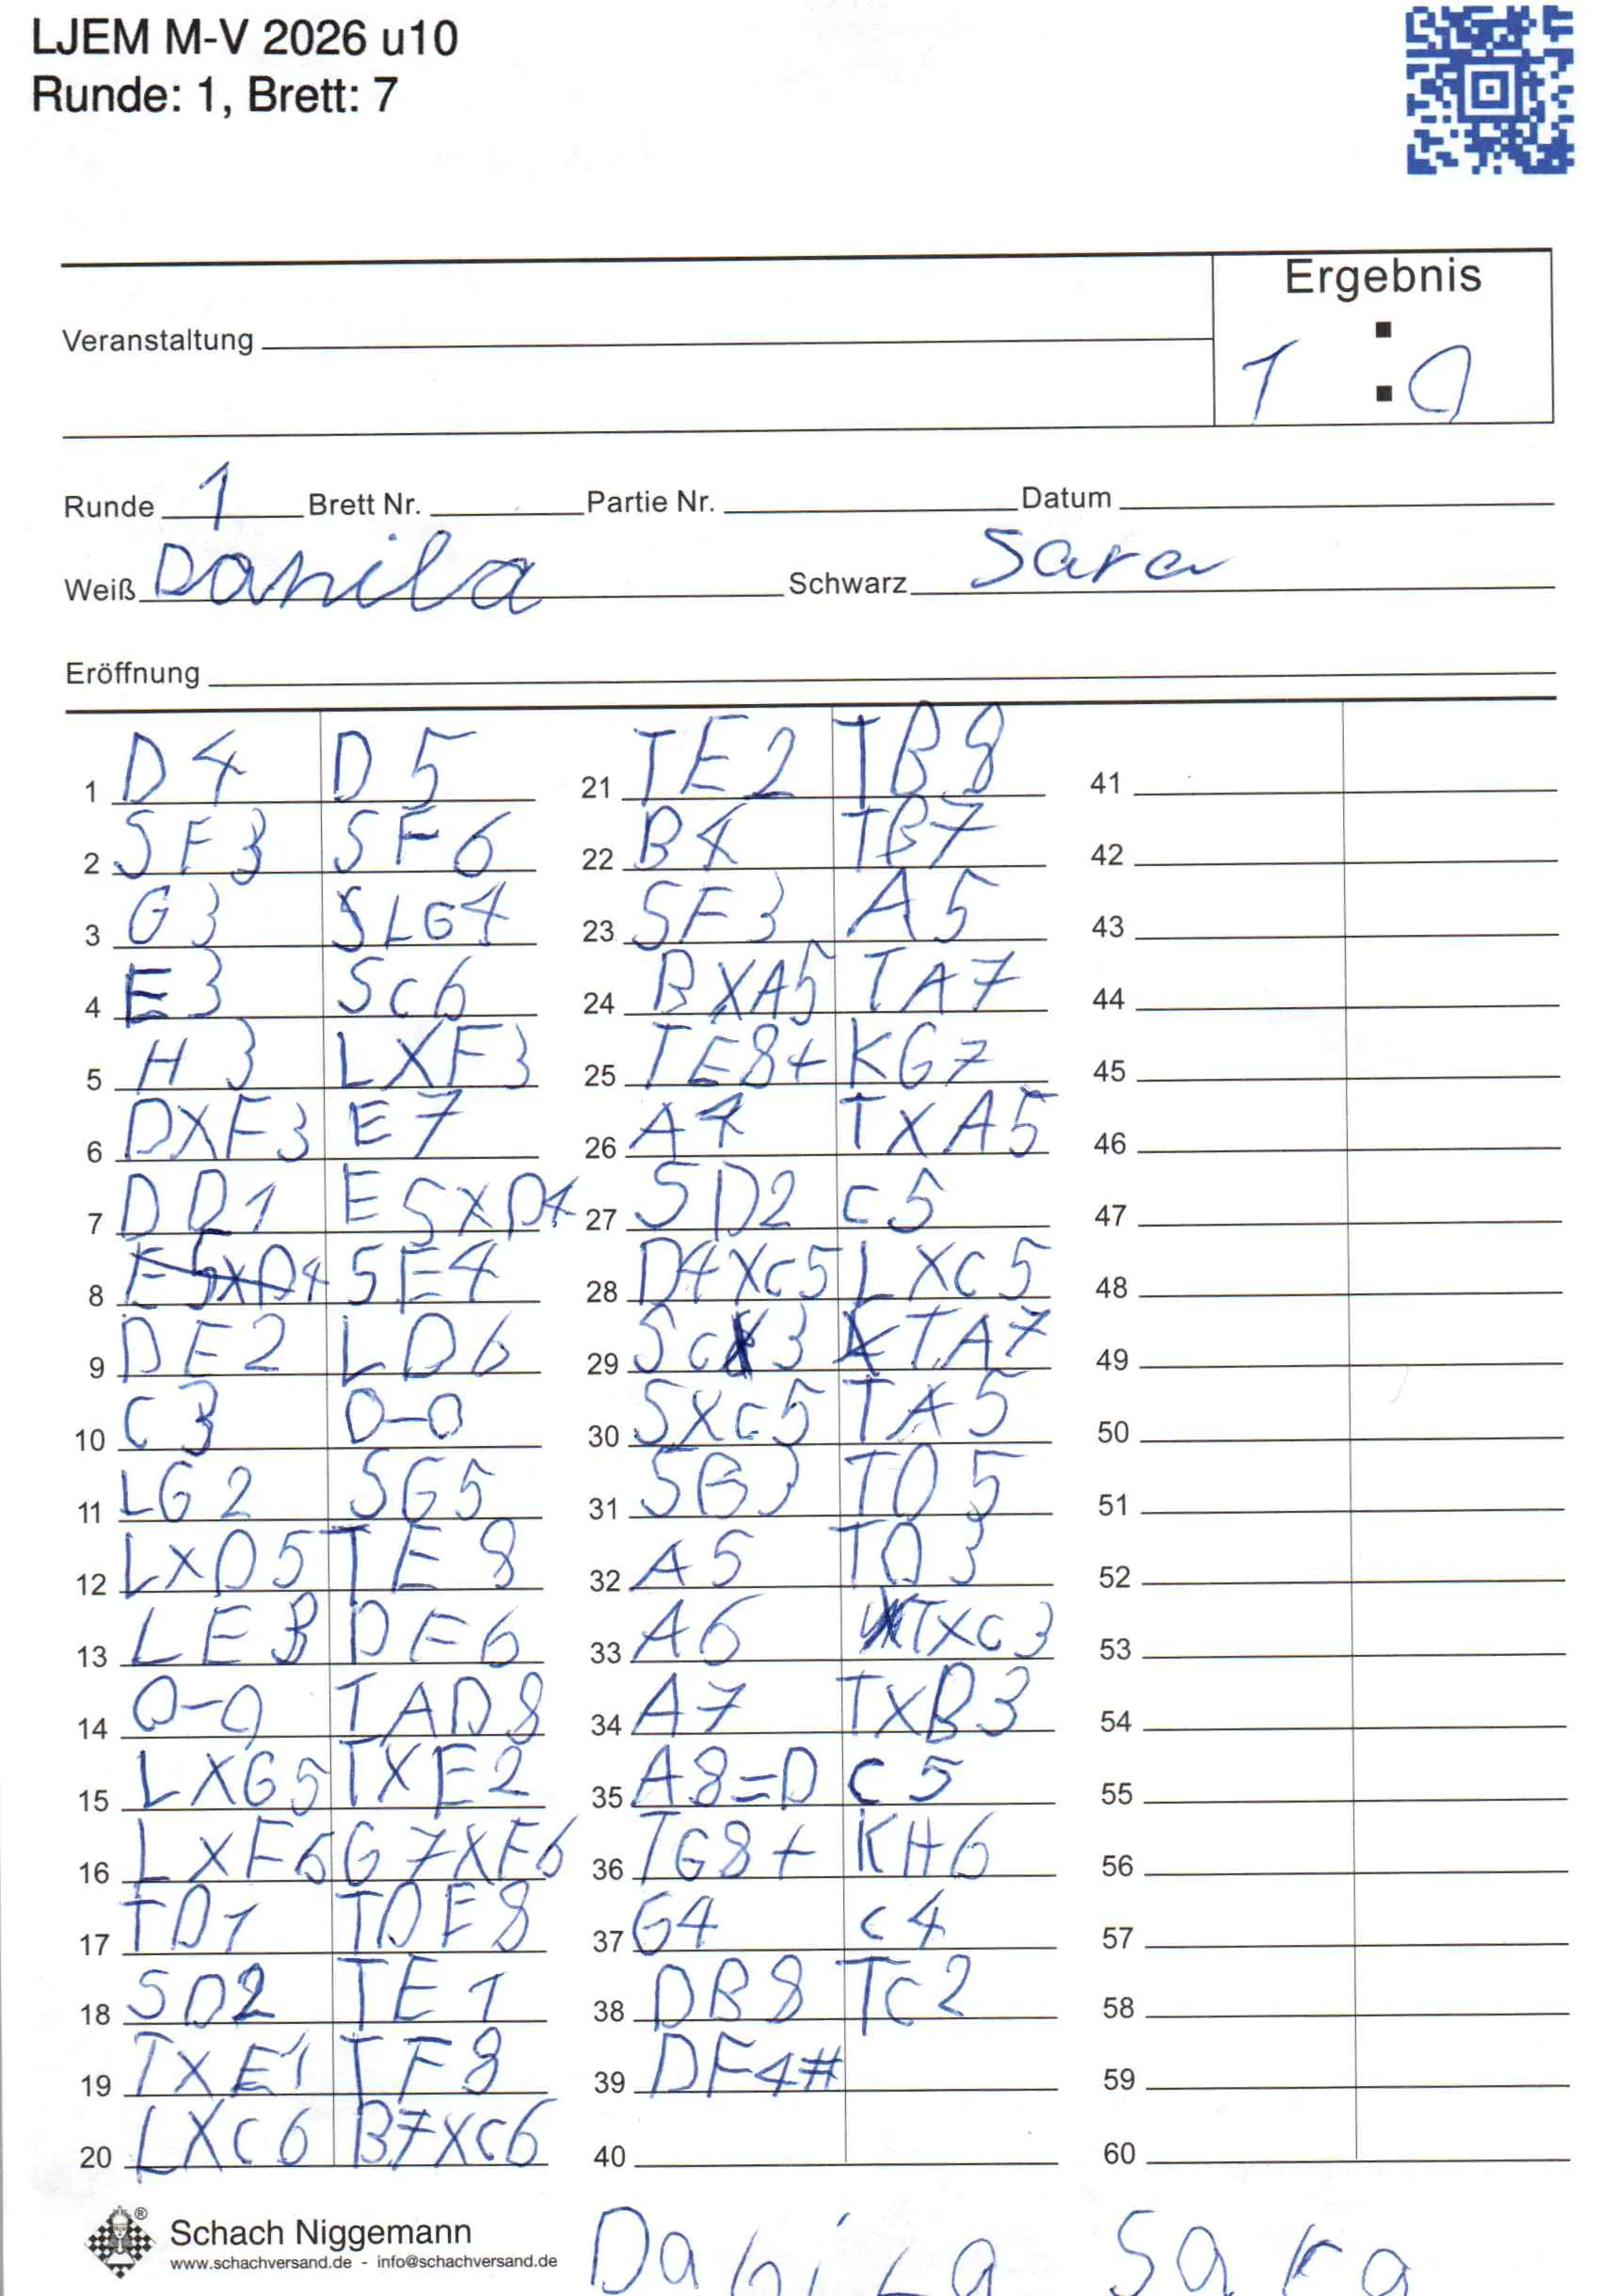 LJEM M-V 2026 u10
Runde: 1, Brett: 7
Ergebnis
Veranstaltung
1 : 0
Runde 1 Brett Nr. Partie Nr. Datum
Weiß Danila Schwarz Sara
Eröffnung
1 D4 D5
2 SF3 SF6
3 G3 SLG4
4 E3 Sc6
5 H3 LXF3
6 DXF3 E7
7 DD1 E5XD4
8 E5xD4 SE4
9 DE2 LD6
10 C3 0-0
11 LG2 SG5
12 LxD5 TE8
13 LE3 DF6
14 0-0 TAD8
15 LXG5 TXE2
16 LxF6 G7XF6
17 TD1 TDE8
18 SD2 TE1
19 TXE1 TF8
20 LXC6 B7XC6
21 TE2 TB8
22 B4 TB7
23 SF3 A5
24 BXA5 TA7
25 TE8+ KG7
26 A4 TXA5
27 SD2 c5
28 D4Xc5 LXC5
29 Sc3 TA7
30 SXc5 TA5
31 SB3 TD5
32 A5 TD3
33 A6 TXC3
34 A7 TXB3
35 A8=D C5
36 TG8+ KH6
37 G4 c4
38 DB8 Tc2
39 DF4#
40
41
42
43
44
45
46
47
48
49
50
51
52
53
54
55
56
57
58
59
60
Schach Niggemann
www.schachversand.de - info@schachversand.de
Danila Sara